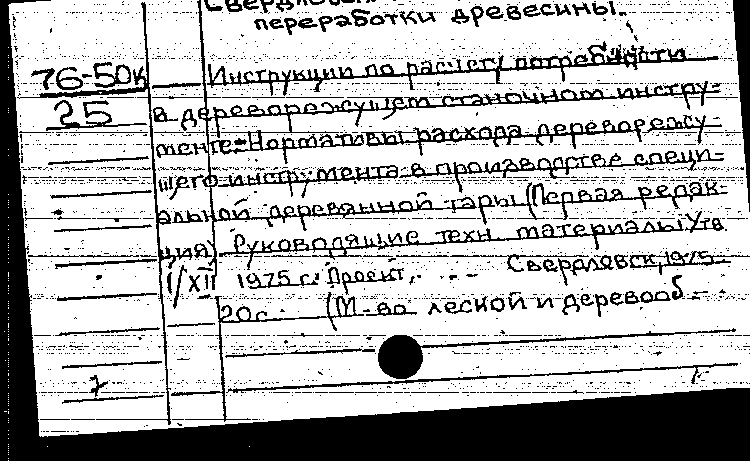 переработки древесины.
76-50к Инструкции по расчету потребности
25 в дереворежущем станочном инстру-
менте. Нормативы расхода дереворежу-
щего инструмента в производстве специ-
альной деревянной тары (Первая редак-
ция) Руководящие техн материалы Утв
1/XII 1975 г. Проект, . - - - Свердлавск, 1975
20с. (М-во лесной и деревооб
7